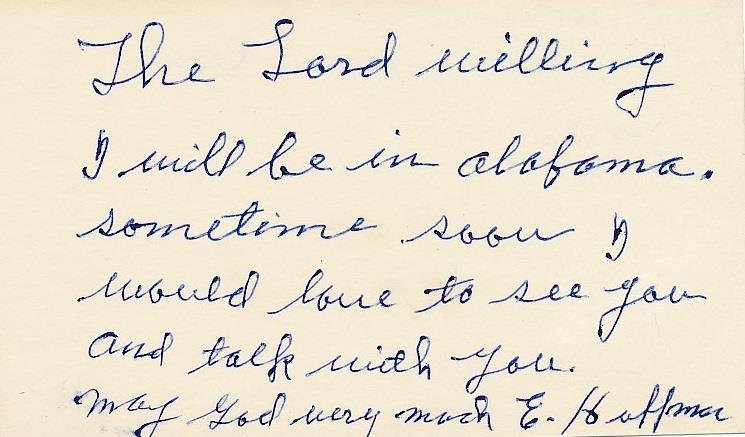 The Lord willing
I will be in alabama.
sometime soon I
would love to see you
and talk with you.
may God very much E. Hoffman